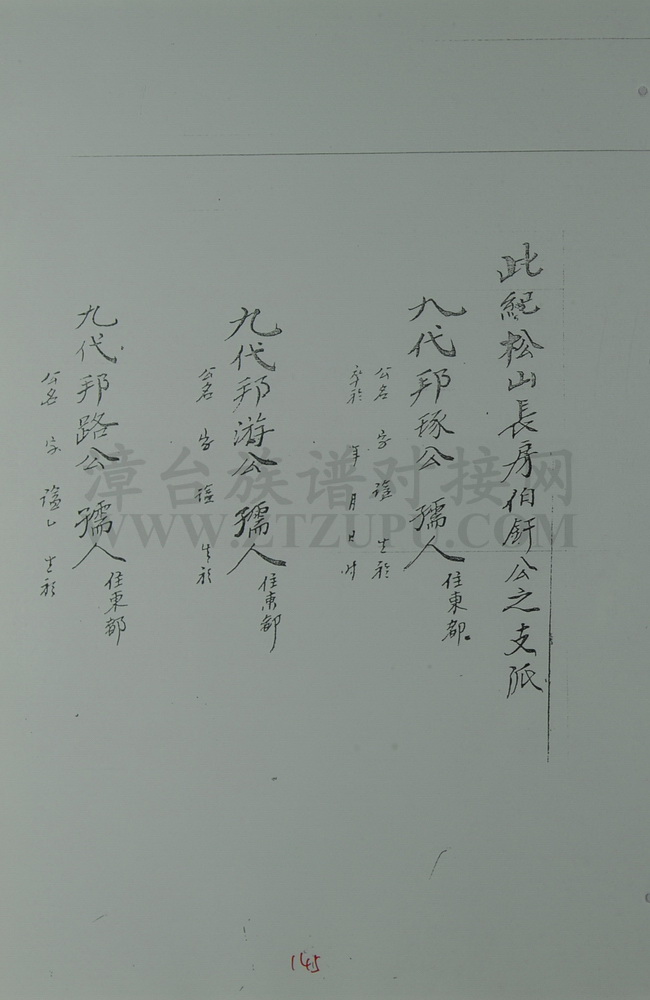 此紀松山長房伯釬公之支派
九代邦琢公 孺人住東都
公名 字 諡 生於
卒於 年 月 日 时
九代邦游公 孺人住東都
公名 字 諡 生於
九代邦路公 孺人住東都
公名 字 諡 生於
漳台族谱对接网
WWW.ZTZUPU.COM
145